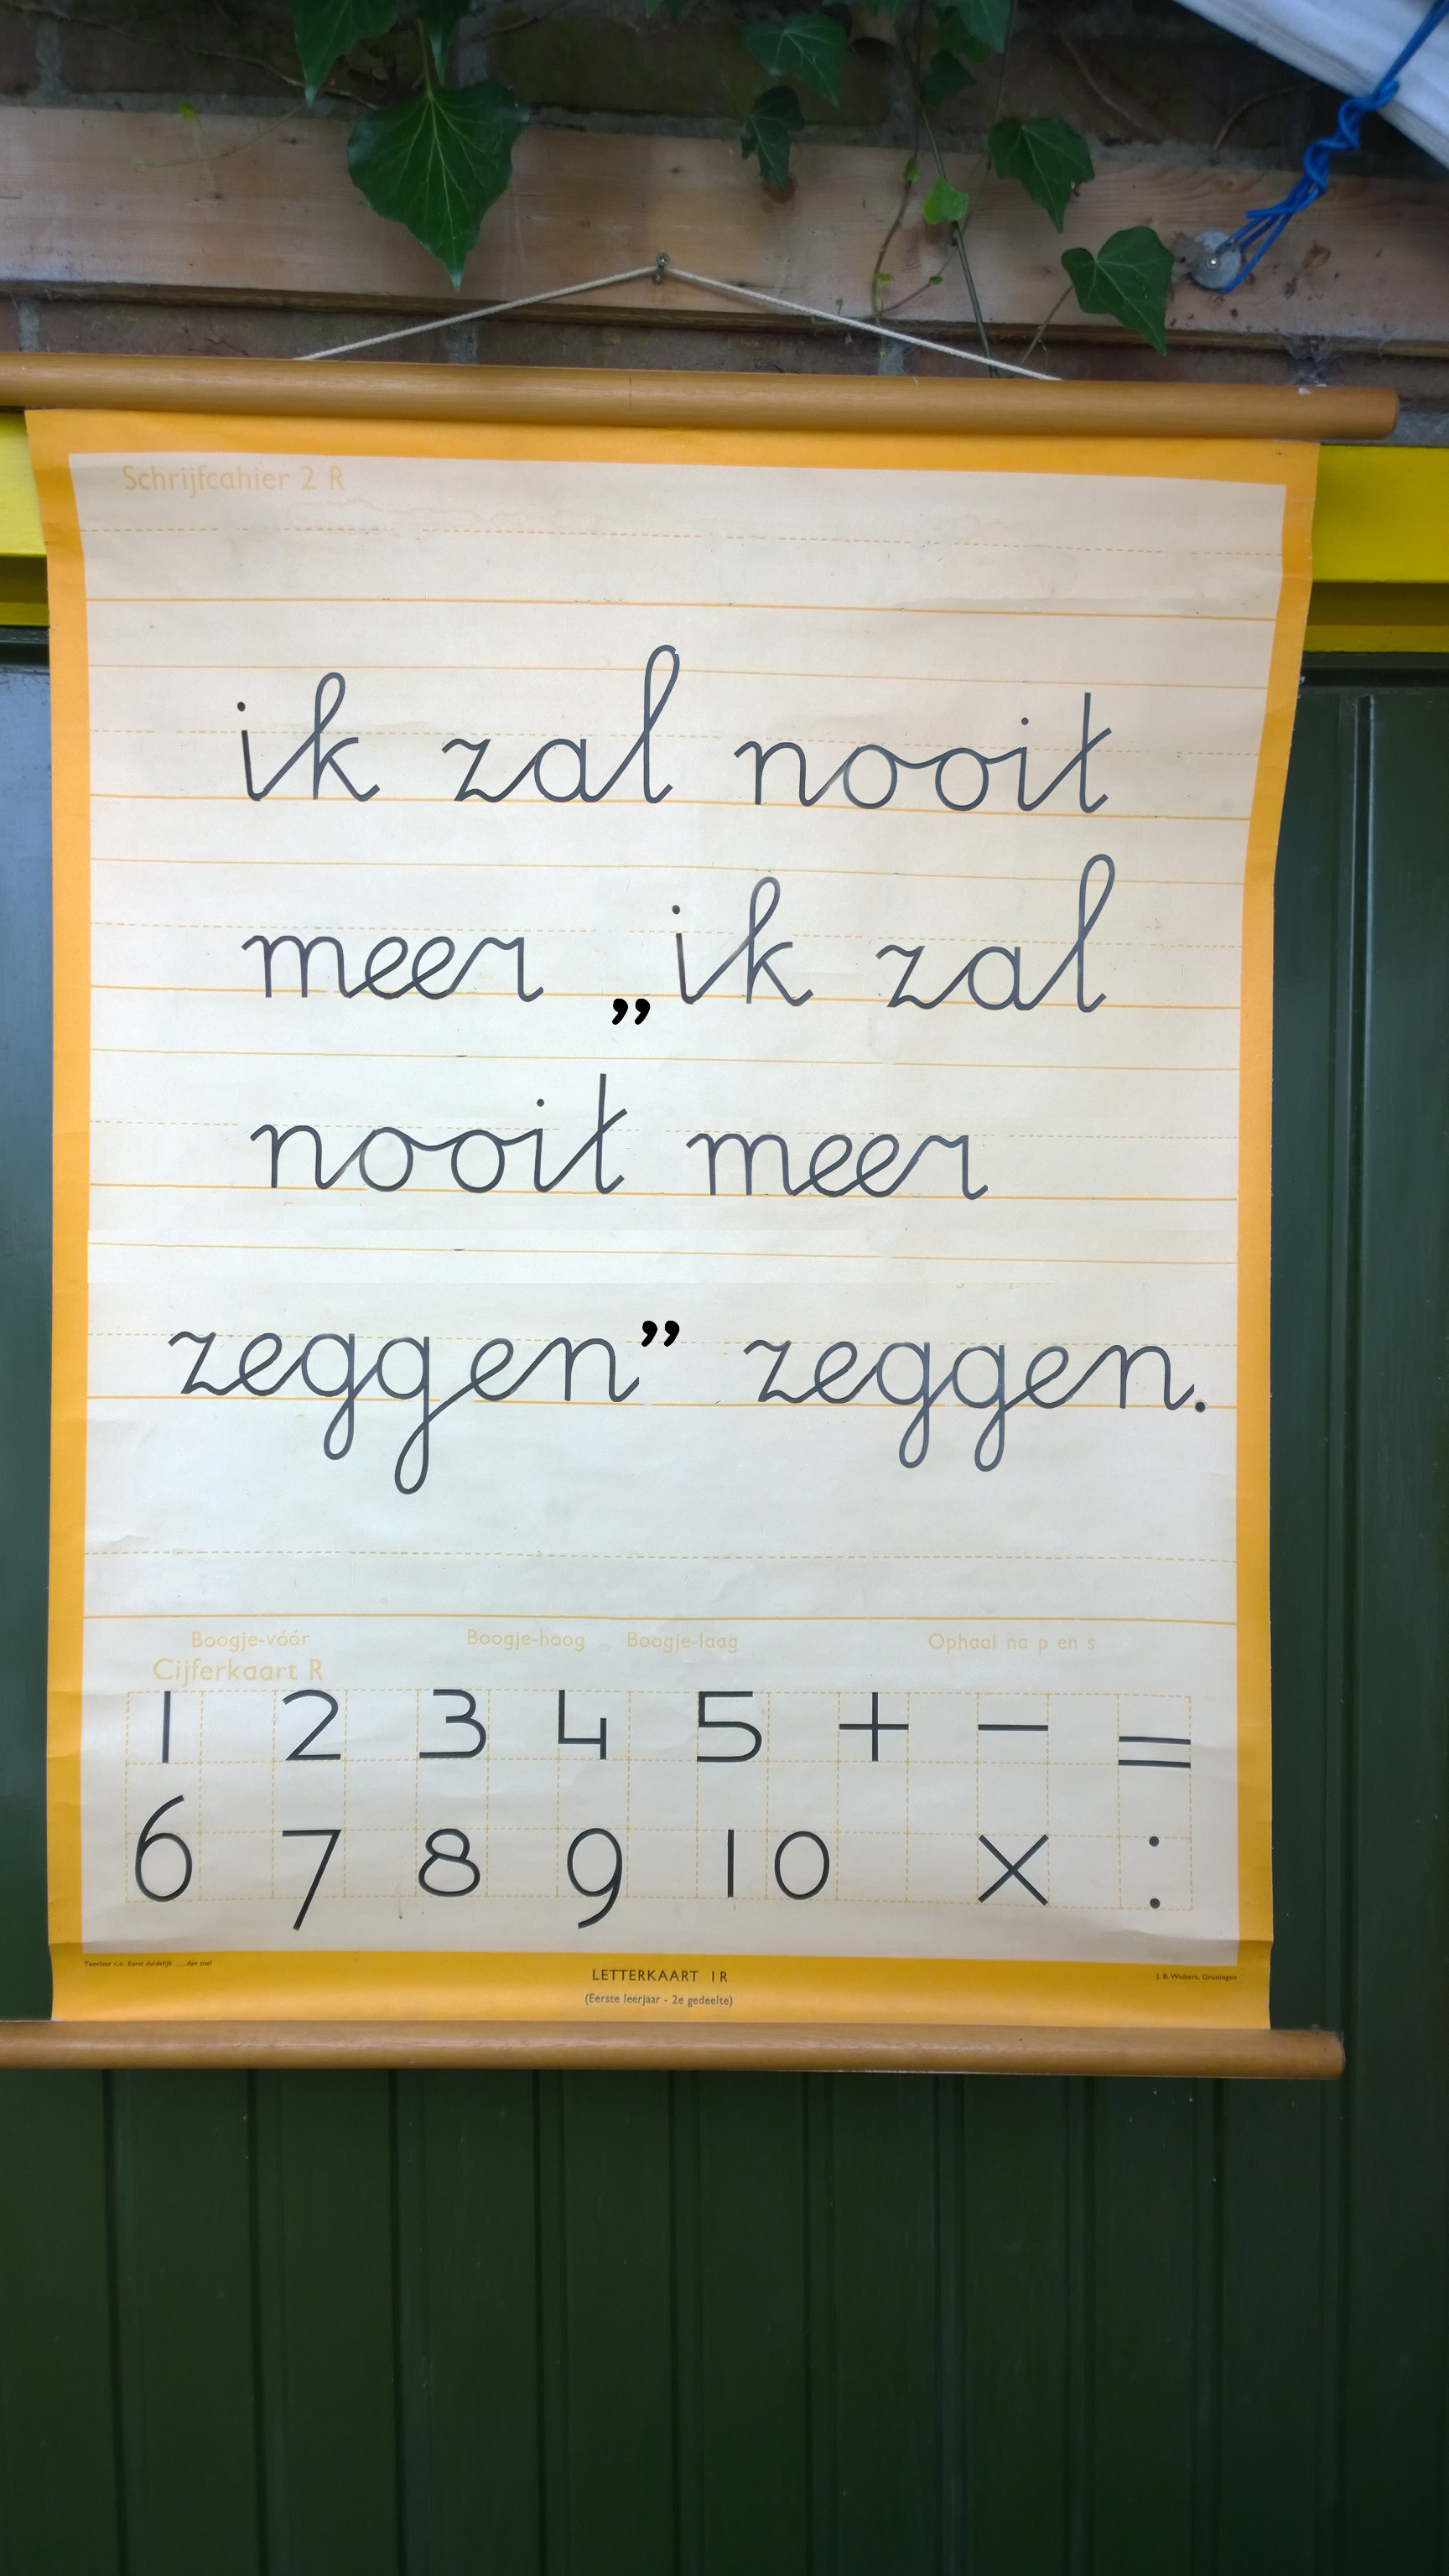 Schrijfcahier 2 R
ik zal nooit
meer „ik zal
nooit meer
zeggen” zeggen.
Boogje-vóór Boogje-hoog Boogje-laag Ophaal na p en s
Cijferkaart R
1 2 3 4 5 + − =
6 7 8 9 10 × :
Texelaar c.s. Eerst duidelijk .....dan snel
LETTERKAART 1R
J. B. Wolters, Groningen
(Eerste leerjaar - 2e gedeelte)